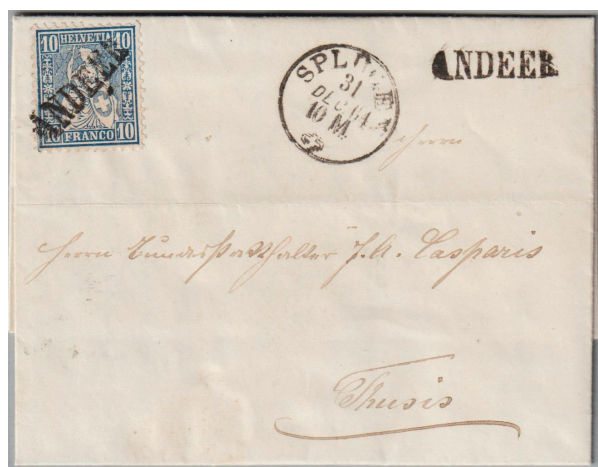 10 HELVETIA 10
ANDEER
10 FRANCO 10
SPLÜGEN
31
DEC 64
10 M
ANDEER
Herrn
Herrn Bundesstatthalter J. A. Casparis
Thusis